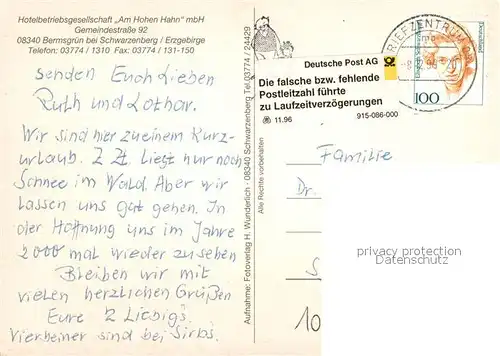 Hotelbetriebsgesellschaft „Am Hohen Hahn" mbH
Gemeindestraße 92
08340 Bermsgrün bei Schwarzenberg / Erzgebirge
Telefon: 03774 / 1310 Fax: 03774 / 131-150
senden Euch Lieben
Ruth und Lothar.
Wir sind hier zu einem Kurz-
urlaub. Z Zt. liegt nur noch
Schnee im Wald. Aber wir
lassen uns gut gehen. In
der Hoffnung uns im Jahre
2000 mal wieder zu sehen
Bleiben wir mit
vielen herzlichen Grüßen
Eure 2 Liebig's
Vierbeiner sind bei Sirbs.
Aufnahme: Fotoverlag H. Wunderlich · 08340 Schwarzenberg Tel. 03774 / 24429
Alle Rechte vorbehalten
Deutsche Post AG
Die falsche bzw. fehlende
Postleitzahl führte
zu Laufzeitverzögerungen
11.96 915-086-000
BRIEFZENTRUM
Deutschland
100
Familie
Dr.
S
10
privacy protection
Datenschutz